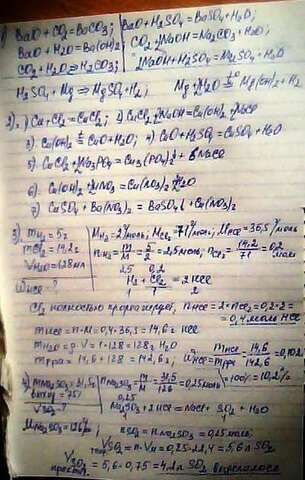 1) BaO + CO2 = BaCO3; BaO + H2SO4 = BaSO4 + H2O;
BaO + H2O = Ba(OH)2; CO2 + NaOH = Na2CO3 + H2O;
CO2 + H2O = H2CO3; 2NaOH + H2SO4 = Na2SO4 + H2O
H2SO4 + Mg = MgSO4 + H2; Mg + H2O = Mg(OH)2 + H2
2) 1) Cu + Cl2 = CuCl2; 2) CuCl2 + NaOH = Cu(OH)2 + NaCl
3) Cu(OH)2 = CuO + H2O; 4) CuO + H2SO4 = CuSO4 + H2O
5) CuCl2 + Na3PO4 = Cu3(PO4)2↓ + 6NaCl
6) Cu(OH)2 + HNO3 = Cu(NO3)2 + H2O
7) CuSO4 + Ba(NO3)2 = BaSO4↓ + Cu(NO3)2
3) mH2 = 5г MH2 = 2г/моль; MCl2 = 71г/моль; MHCl = 36,5 г/моль
mCl2 = 14,2г nH2 = m/M = 5/2 = 2,5моль; nCl2 = 14,2/71 = 0,2 моль
VH2O = 128мл
WHCl - ? 2,5 0,2
H2 + Cl2 = 2HCl
1 1 2
Cl2 полностью прореагирует, nHCl = 2·nCl2 = 0,2·2 =
= 0,4 моль HCl
mHCl = n·M = 0,4·36,5 = 14,6г HCl
mH2O = ρ·V = 1·128 = 128г H2O
mр-ра = 14,6 + 128 = 142,6г; WHCl = mHCl/mр-ра = 14,6/142,6 = 0,102
·100% = 10,2%
4) mNa2SO3 = 31,5г nNa2SO3 = m/M = 31,5/126 = 0,25моль
VSO2 - ? 0,25
Na2SO3 + 2HCl = NaCl + SO2 + H2O
MNa2SO3 = 126г/моль; nSO2 = nNa2SO3 = 0,25моль;
VSO2 = n·Vм = 0,25·22,4 = 5,6л SO2
VSO2 практ. = 5,6·0,75 = 4,2л SO2